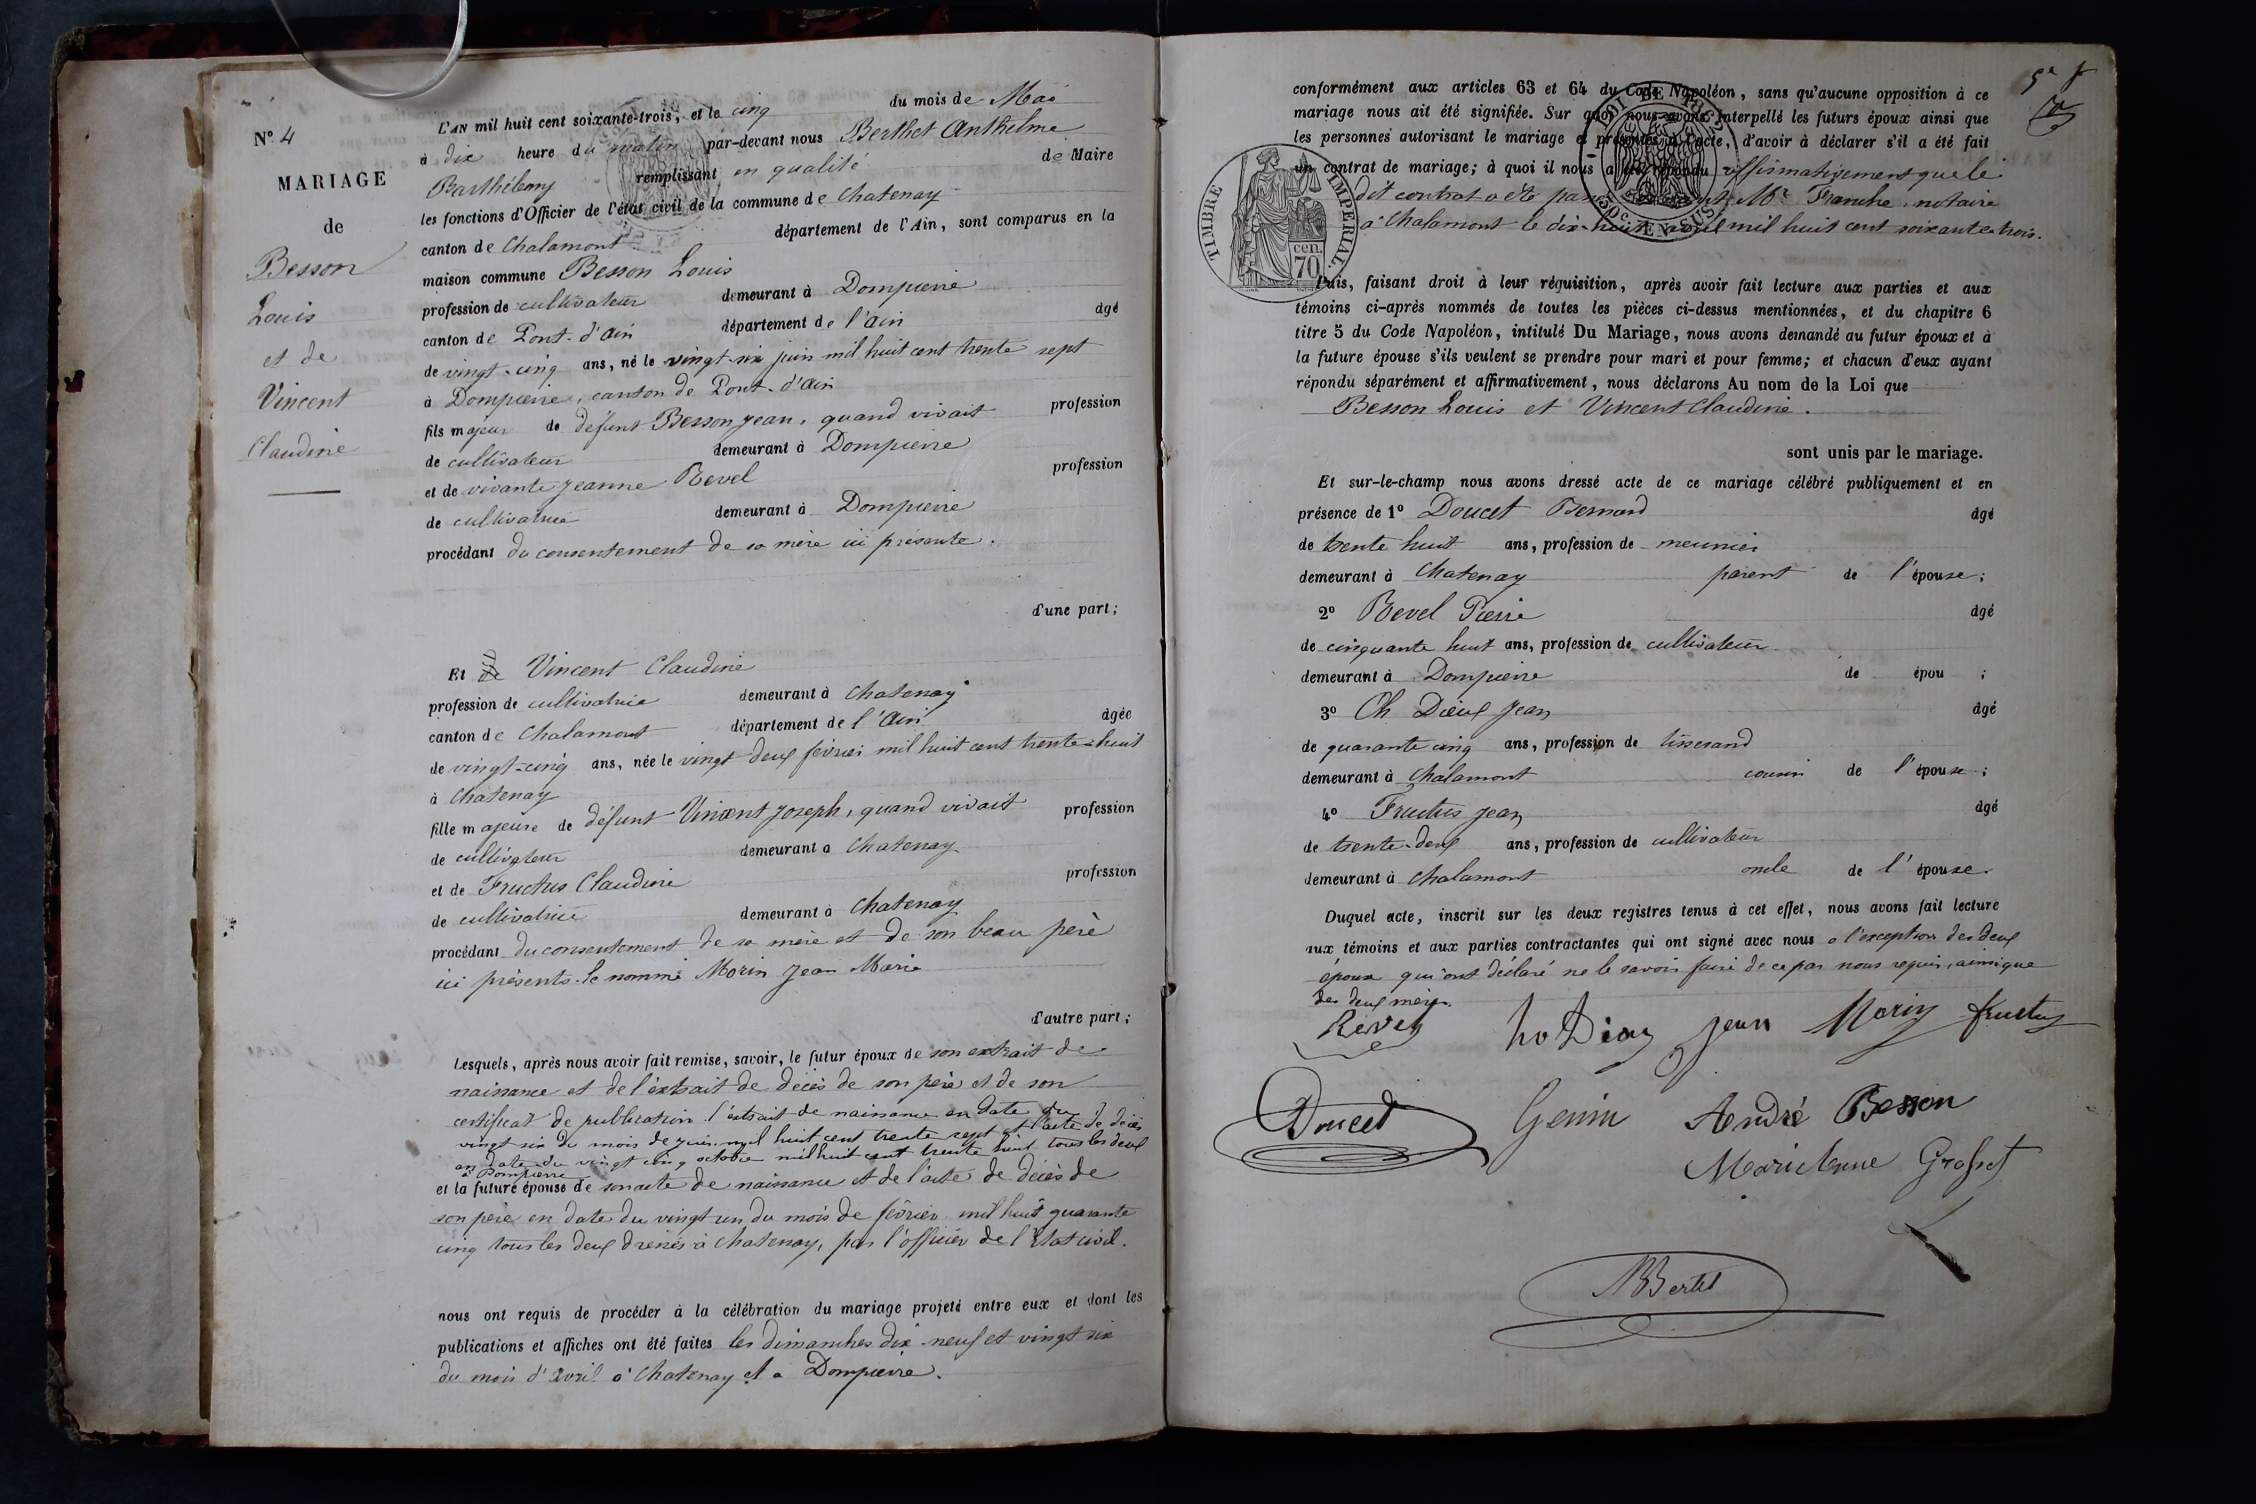 N° 4
MARIAGE
de
Besson
Louis
et de
Vincent
Claudine
L'AN mil huit cent soixante-trois, et le cinq du mois de Mai
à dix heure du matin par-devant nous Berthet Anthelme
Barthélemy remplissant en qualité de Maire
les fonctions d'Officier de l'état civil de la commune de Chatenay
canton de Chalamont département de l'Ain, sont comparus en la
maison commune Besson Louis
profession de cultivateur demeurant à Dompierre
canton de Pont-d'Ain département de l'Ain âgé
de vingt-cinq ans, né le vingt-six juin mil huit cent trente sept
à Dompierre, canton de Pont-d'Ain
fils majeur de défunt Besson Jean, quand vivait profession
de cultivateur demeurant à Dompierre
et de vivante Jeanne Revel profession
de cultivatrice demeurant à Dompierre
procédant du consentement de sa mère ici présente.
d'une part;
Et de Vincent Claudine
profession de cultivatrice demeurant à Chatenay
canton de Chalamont département de l'Ain âgée
de vingt-cinq ans, née le vingt deux février mil huit cent trente-huit
à Chatenay
fille majeure de défunt Vincent Joseph, quand vivait profession
de cultivateur demeurant à Chatenay
et de Fructus Claudine profession
de cultivatrice demeurant à Chatenay
procédant du consentement de sa mère et de son beau père
ici présents le nommé Morin Jean Marie
d'autre part;
Lesquels, après nous avoir fait remise, savoir, le futur époux de son extrait de
naissance et de l'extrait de décès de son père et de son
certificat de publication l'extrait de naissance en date du
vingt six du mois de juin mil huit cent trente sept et l'acte de décès
en date du vingt cinq octobre mil huit cent trente huit tous les deux
à Dompierre
et la future épouse de son acte de naissance et de l'acte de décès de
son père en date du vingt un du mois de février mil huit quarante
cinq tous les deux dressés à Chatenay, par l'officier de l'Etat civil.
nous ont requis de procéder à la célébration du mariage projeté entre eux et dont les
publications et affiches ont été faites les dimanches dix-neuf et vingt six
du mois d'avril à Chatenay et à Dompierre.
conformément aux articles 63 et 64 du Code Napoléon, sans qu'aucune opposition à ce
mariage nous ait été signifiée. Sur quoi nous avons interpellé les futurs époux ainsi que
les personnes autorisant le mariage et présentes à l'acte, d'avoir à déclarer s'il a été fait
un contrat de mariage; à quoi il nous a été répondu affirmativement que le
dit contrat a été passé Mr Franche, notaire
à Chalamont le dix-huit avril mil huit cent soixante trois.
TIMBRE IMPERIAL
70 cen.
Puis, faisant droit à leur réquisition, après avoir fait lecture aux parties et aux
témoins ci-après nommés de toutes les pièces ci-dessus mentionnées, et du chapitre 6
titre 5 du Code Napoléon, intitulé Du Mariage, nous avons demandé au futur époux et à
la future épouse s'ils veulent se prendre pour mari et pour femme; et chacun d'eux ayant
répondu séparément et affirmativement, nous déclarons Au nom de la Loi que
Besson Louis et Vincent Claudine.
sont unis par le mariage.
Et sur-le-champ nous avons dressé acte de ce mariage célébré publiquement et en
présence de 1° Doucet Bernard âgé
de trente huit ans, profession de meunier
demeurant à Chatenay parent de l'épouse;
2° Revel Pierre âgé
de cinquante huit ans, profession de cultivateur
demeurant à Dompierre de épou ;
3° Ch Dieux Jean âgé
de quarante cinq ans, profession de tisserand
demeurant à Chalamont cousin de l'épouse;
4° Fructus Jean âgé
de trente-deux ans, profession de cultivateur
demeurant à Chalamont oncle de l'épouse.
Duquel acte, inscrit sur les deux registres tenus à cet effet, nous avons fait lecture
aux témoins et aux parties contractantes qui ont signé avec nous à l'exception des deux
époux qui ont déclaré ne le savoir faire de ce par nous requis, ainsi que
des deux mères.
Revel Jean Morin fructus
Doucet Genin André Besson
Marie